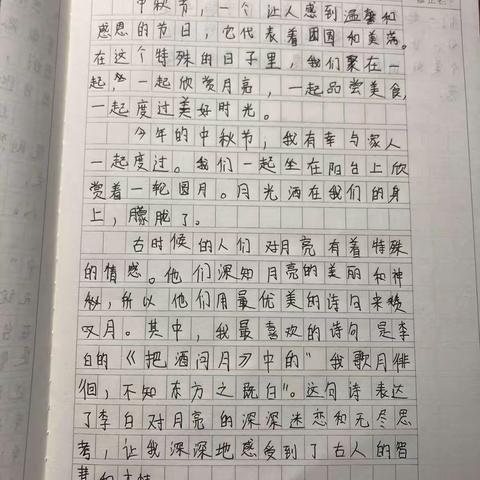 中秋节，一个让人感到温馨和
感恩的节日，它代表着团圆和美满。
在这个特殊的日子里，我们聚在一
起，一起欣赏月亮，一起品尝美食，
一起度过美好时光。
今年的中秋节，我有幸与家人
一起度过。我们一起坐在阳台上欣
赏着一轮圆月。月光洒在我们的身
上，朦胧了。
古时候的人们对月亮有着特殊
的情感。他们深知月亮的美丽和神
秘，所以他们用最优美的诗句来赞
叹月。其中，我最喜欢的诗句是李
白的《把酒问月》中的"我歌月徘
徊，不知东方之既白"。这句诗表达
了李白对月亮的深深迷恋和无尽思
考，让我深深地感受到了古人的智